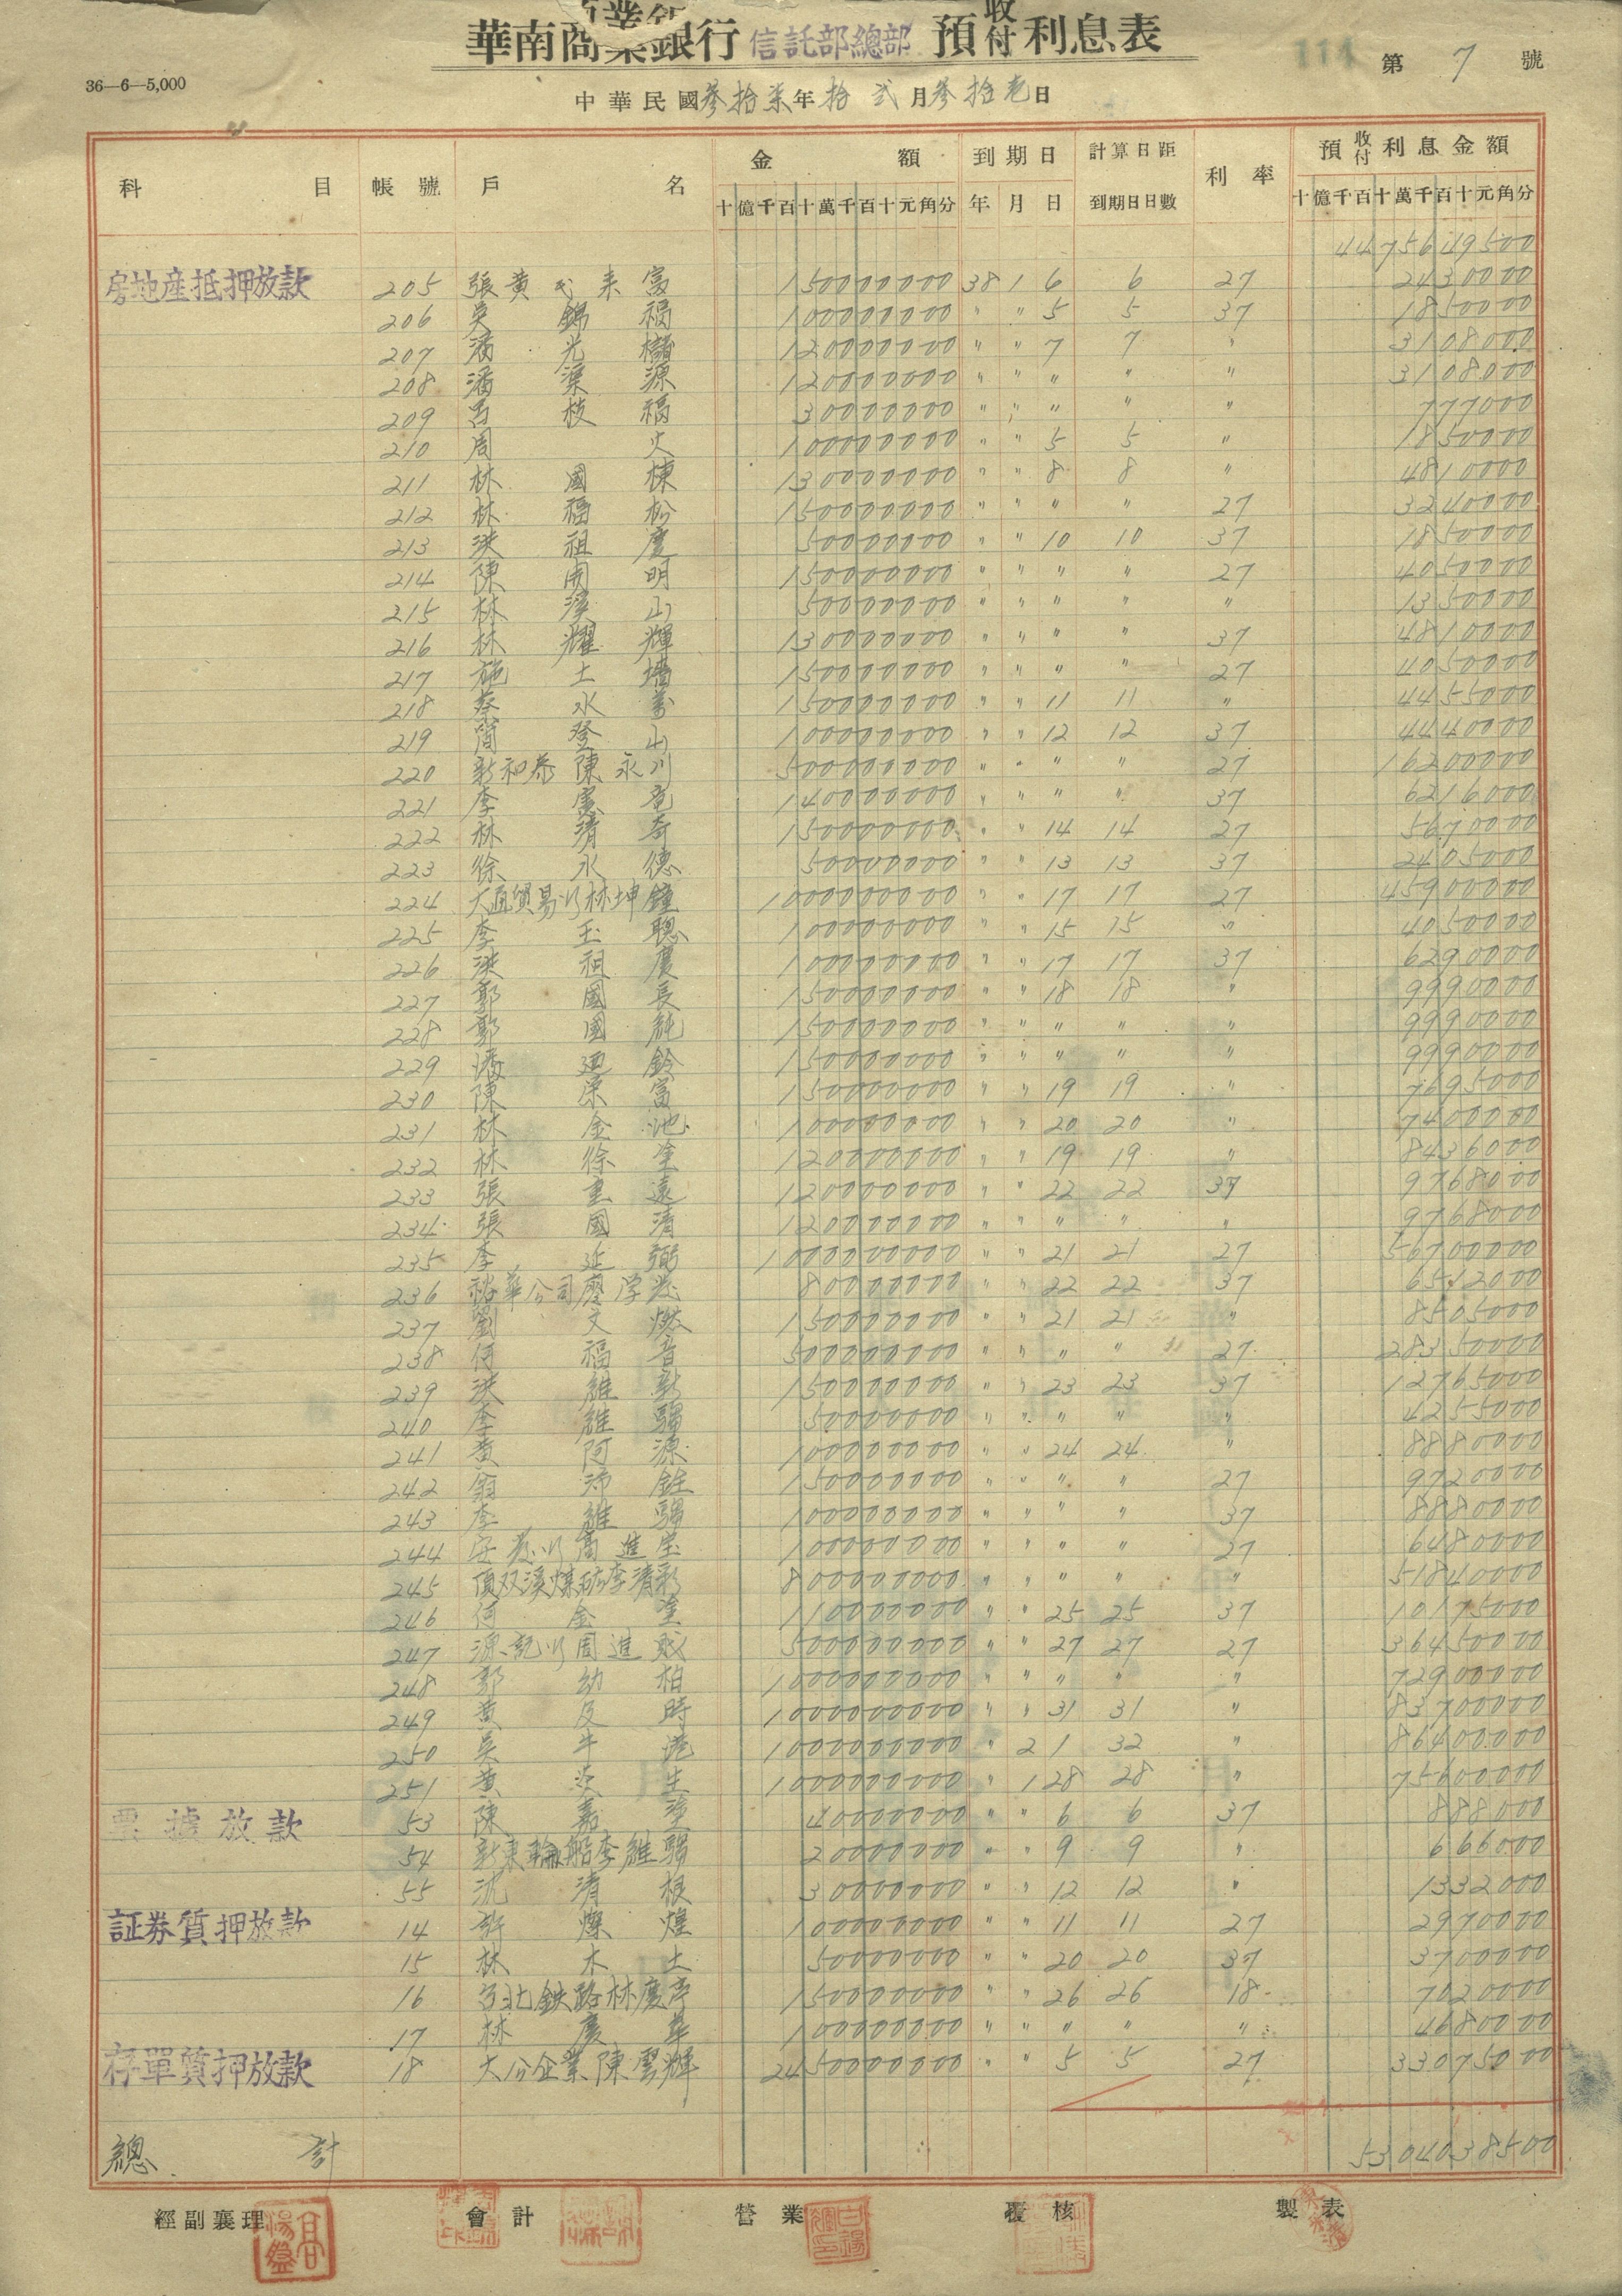 華南商業銀行 信託部總部 預收付利息表
114 第 7 號
36—6—5,000
中華民國叁拾柒年拾弍月叁拾壱日
科目 帳號 戶名 金額 到期日 計算日距 利率 預收付利息金額
十億千百十萬千百十元角分 年 月 日 到期日日數 十億千百十萬千百十元角分
4475649500
房地産抵押放款 205 張黃氏來富 150000000 38 1 6 6 27 2430000
206 吳錦福 100000000 〃 〃 5 5 37 1850000
207 潘光櫧 120000000 〃 〃 7 7 〃 3108000
208 潘渠源 120000000 〃 〃 〃 〃 〃 3108000
209 呂枝福 30000000 〃 〃 〃 〃 〃 777000
210 周火 100000000 〃 〃 5 5 〃 1850000
211 林國棟 130000000 〃 〃 8 8 〃 4810000
212 林福松 150000000 〃 〃 〃 〃 27 3240000
213 洪祖慶 50000000 〃 〃 10 10 37 1850000
214 陳開明 150000000 〃 〃 〃 〃 27 4050000
215 林溪山 50000000 〃 〃 〃 〃 〃 1350000
216 林耀輝 130000000 〃 〃 〃 〃 37 4810000
217 施土墻 150000000 〃 〃 〃 〃 27 4050000
218 蔡水萬 150000000 〃 〃 11 11 〃 4455000
219 簡登山 100000000 〃 〃 12 12 37 4440000
220 新和泰陳永川 500000000 〃 〃 〃 〃 27 16200000
221 李憲竜 140000000 〃 〃 〃 〃 37 6216000
222 林清奇 150000000 〃 〃 14 14 27 5670000
223 徐永德 50000000 〃 〃 13 13 37 2405000
224 大直貿易行林坤鐘 1000000000 〃 〃 17 17 27 45900000
225 李玉聰 100000000 〃 〃 15 15 〃 4050000
226 洪祖慶 100000000 〃 〃 17 17 37 6290000
227 郭國長 150000000 〃 〃 18 18 〃 9990000
228 郭國純 150000000 〃 〃 〃 〃 〃 9990000
229 潘迺鈴 150000000 〃 〃 〃 〃 〃 9990000
230 陳深富 150000000 〃 〃 19 19 〃 7695000
231 林金池 100000000 〃 〃 20 20 〃 7400000
232 林徐塗 120000000 〃 〃 19 19 〃 8436000
233 張重遠 120000000 〃 〃 22 22 37 9768000
234 張國清 120000000 〃 〃 〃 〃 〃 9768000
235 李延弼 1000000000 〃 〃 21 21 27 56700000
236 裕華公司廖学發 80000000 〃 〃 22 22 37 6512000
237 劉文燃 150000000 〃 〃 21 21 〃 8505000
238 何福音 500000000 〃 〃 〃 〃 27 28350000
239 洪維新 150000000 〃 〃 23 23 37 12765000
240 李維駒 50000000 〃 〃 〃 〃 〃 4255000
241 黃阿源 100000000 〃 〃 24 24 〃 8880000
242 翁沛銓 150000000 〃 〃 〃 〃 27 9720000
243 李維駒 100000000 〃 〃 〃 〃 37 8880000
244 安義行高進宝 100000000 〃 〃 〃 〃 27 6480000
245 頂双溪煤砿李清彩 800000000 〃 〃 〃 〃 〃 51840000
246 何金塗 110000000 〃 〃 25 25 37 10175000
247 源記行周進財 500000000 〃 〃 27 27 27 36450000
248 郭幼柏 1000000000 〃 〃 〃 〃 〃 72900000
249 黃及時 1000000000 〃 〃 31 31 〃 83700000
250 吳牛港 1000000000 〃 2 1 32 〃 86400000
251 黃深生 1000000000 〃 1 28 28 〃 75600000
票據放款 53 陳嘉塗 40000000 〃 〃 6 6 37 888000
54 新東輪船李維駒 20000000 〃 〃 9 9 〃 666000
55 沈清根 30000000 〃 〃 12 12 〃 1332000
証券質押放款 14 許燦煌 100000000 〃 〃 11 11 27 2970000
15 林木土 50000000 〃 〃 20 20 37 3700000
16 台北鉄路林慶亭 150000000 〃 〃 26 26 18 7020000
17 林慶華 100000000 〃 〃 〃 〃 〃 4680000
存單質押放款 18 大公企業陳雲輝 2450000000 〃 〃 5 5 27 33075000
總計 5304038500
經副襄理 會計 營業 覆核 製表